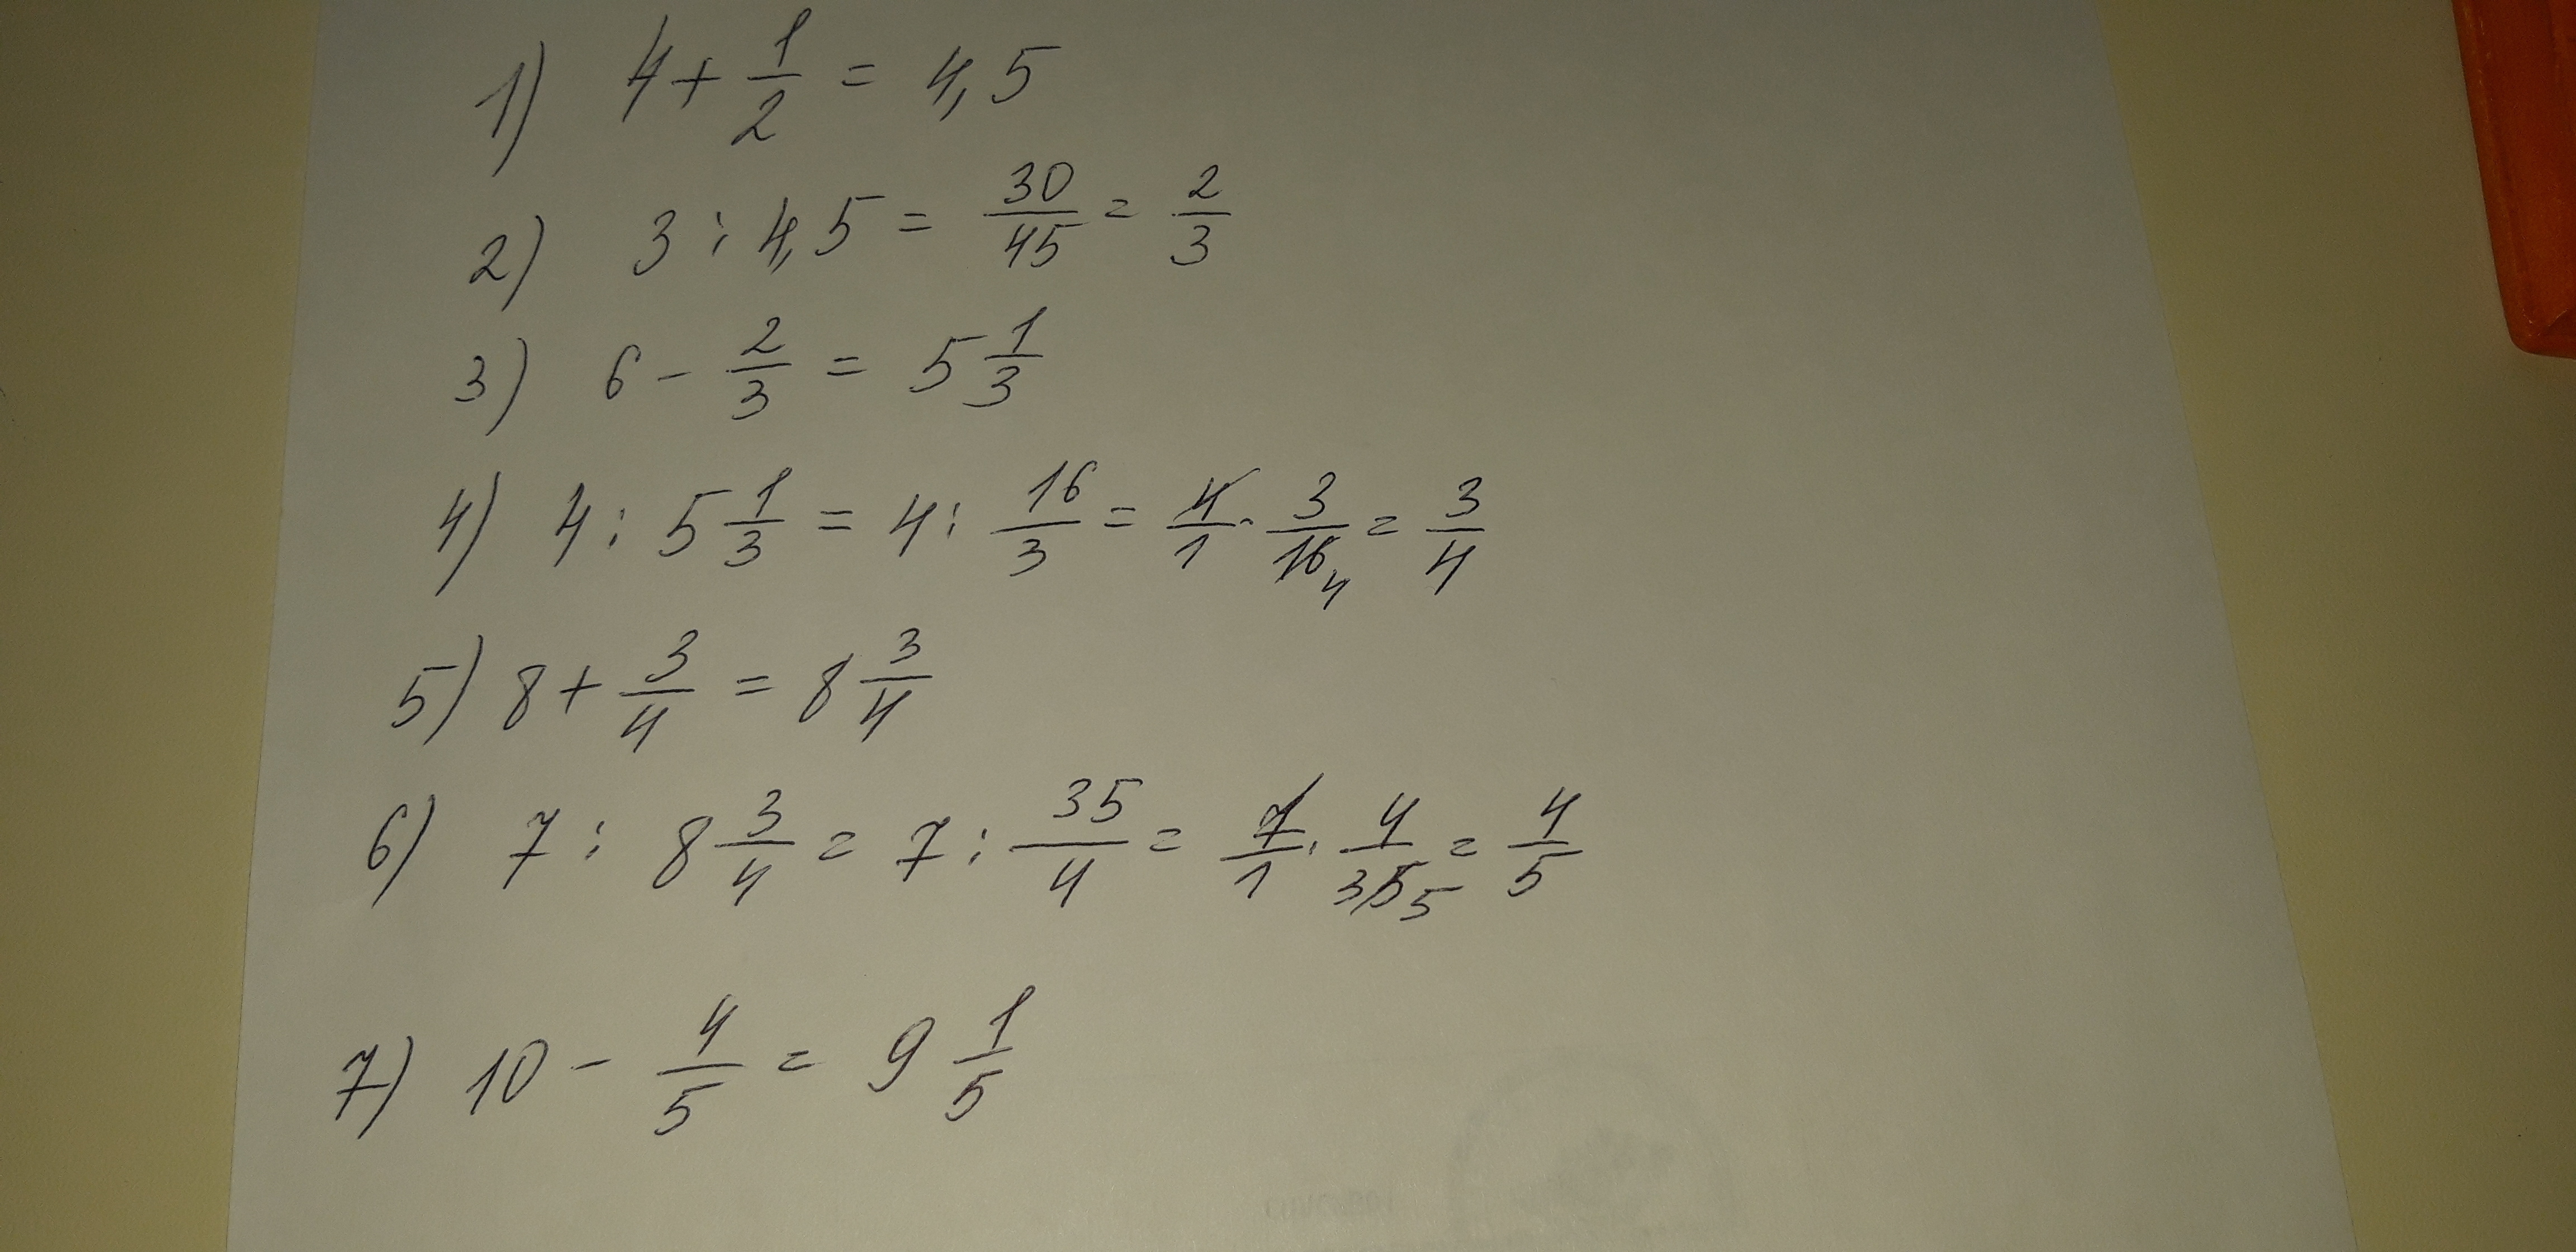 1) 4 + 1/2 = 4,5
2) 3 : 4,5 = 30/45 = 2/3
3) 6 - 2/3 = 5 1/3
4) 4 : 5 1/3 = 4 : 16/3 = 4/1 · 3/16 4 = 3/4
5) 8 + 3/4 = 8 3/4
6) 7 : 8 3/4 = 7 : 35/4 = 7/1 · 4/35 5 = 4/5
7) 10 - 4/5 = 9 1/5